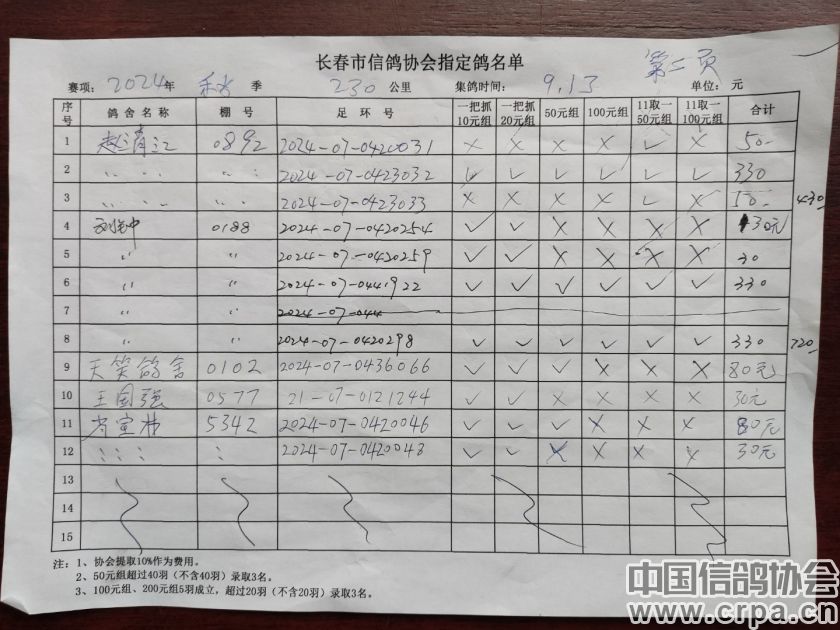 长春市信鸽协会指定鸽名单
第二页
赛项: 2024年 秋 季 230 公里 集鸽时间: 9.13 单位: 元
序号 鸽舍名称 棚号 足环号 一把抓10元组 一把抓20元组 50元组 100元组 11取一50元组 11取一100元组 合计
1 赵清江 0892 2024-07-0420031 × × × × ✓ × 50-
2 〃 〃 2024-07-0423032 ✓ ✓ ✓ ✓ ✓ ✓ 330
3 〃 〃 2024-07-0423033 × × × × ✓ × 50- 430
4 0188 2024-07-0420254 ✓ ✓ × × × × 30元
5 〃 〃 2024-07-0420259 ✓ ✓ × × × × 30
6 〃 〃 2024-07-0441922 ✓ ✓ ✓ ✓ ✓ ✓ 330
7 〃 〃 2024-07-044
8 〃 〃 2024-07-0420298 ✓ ✓ ✓ ✓ ✓ ✓ 330 720
9 天笑鸽舍 0102 2024-07-0436066 ✓ ✓ ✓ × × × 80元
10 王国强 0577 21-07-0121244 ✓ ✓ × × × × 30元
11 5342 2024-07-0420046 ✓ ✓ ✓ × × × 80元
12 2024-07-0420048 ✓ ✓ × × × × 30元
13
14
15
注: 1、协会提取10%作为费用。
2、50元组超过40羽(不含40羽)录取3名。
3、100元组、200元组5羽成立,超过20羽(不含20羽)录取3名。
中国信鸽协会
www.crpa.cn